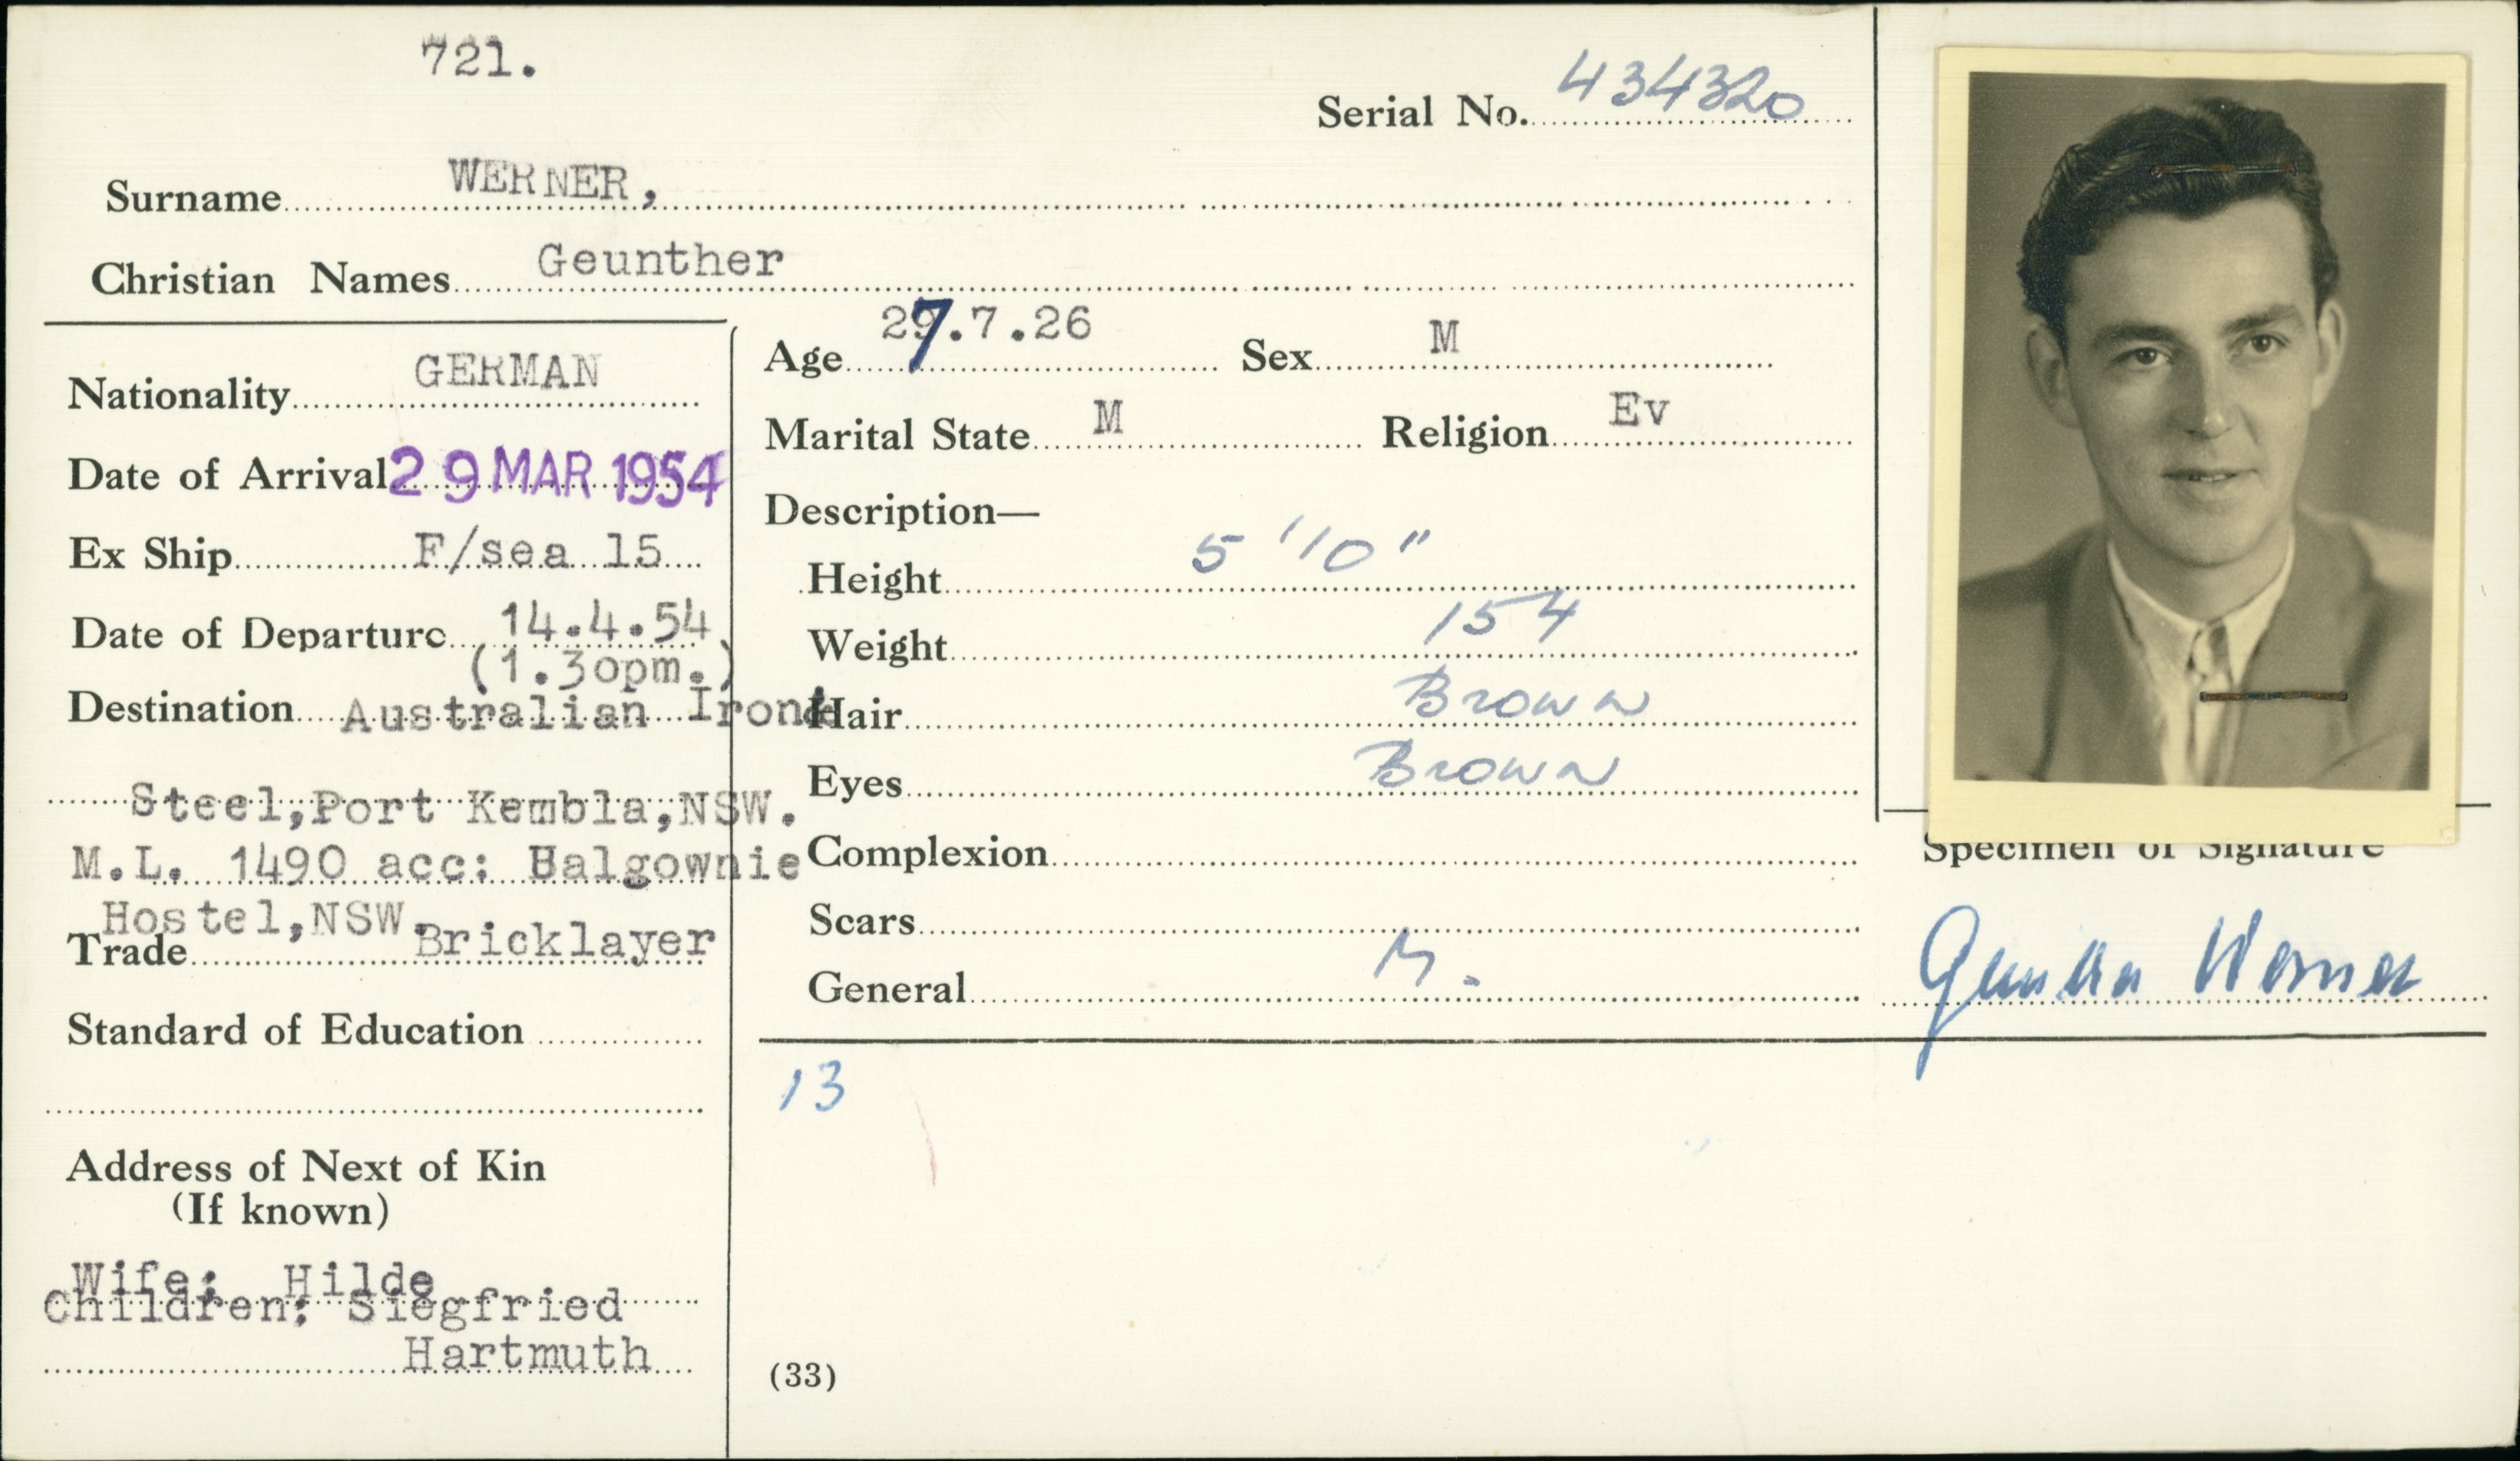 721.
Serial No. 434320
Surname WERNER,
Christian Names Geunther
Nationality GERMAN
Date of Arrival 29 MAR 1954
Ex Ship F/sea 15
Date of Departure 14.4.54
(1.30pm.)
Destination Australian Iron&
Steel,Port Kembla,NSW.
M.L. 1490 acc: Balgownie
Hostel,NSW.
Trade Bricklayer
Standard of Education
Address of Next of Kin
(If known)
Wife: Hilde
Children: Siegfried
Hartmuth
Age 27.7.26 Sex M
Marital State M Religion Ev
Description—
Height 5'10"
Weight 154
Hair Brown
Eyes Brown
Complexion
Scars
General M.
13
(33)
Specimen of Signature
Gunther Werner